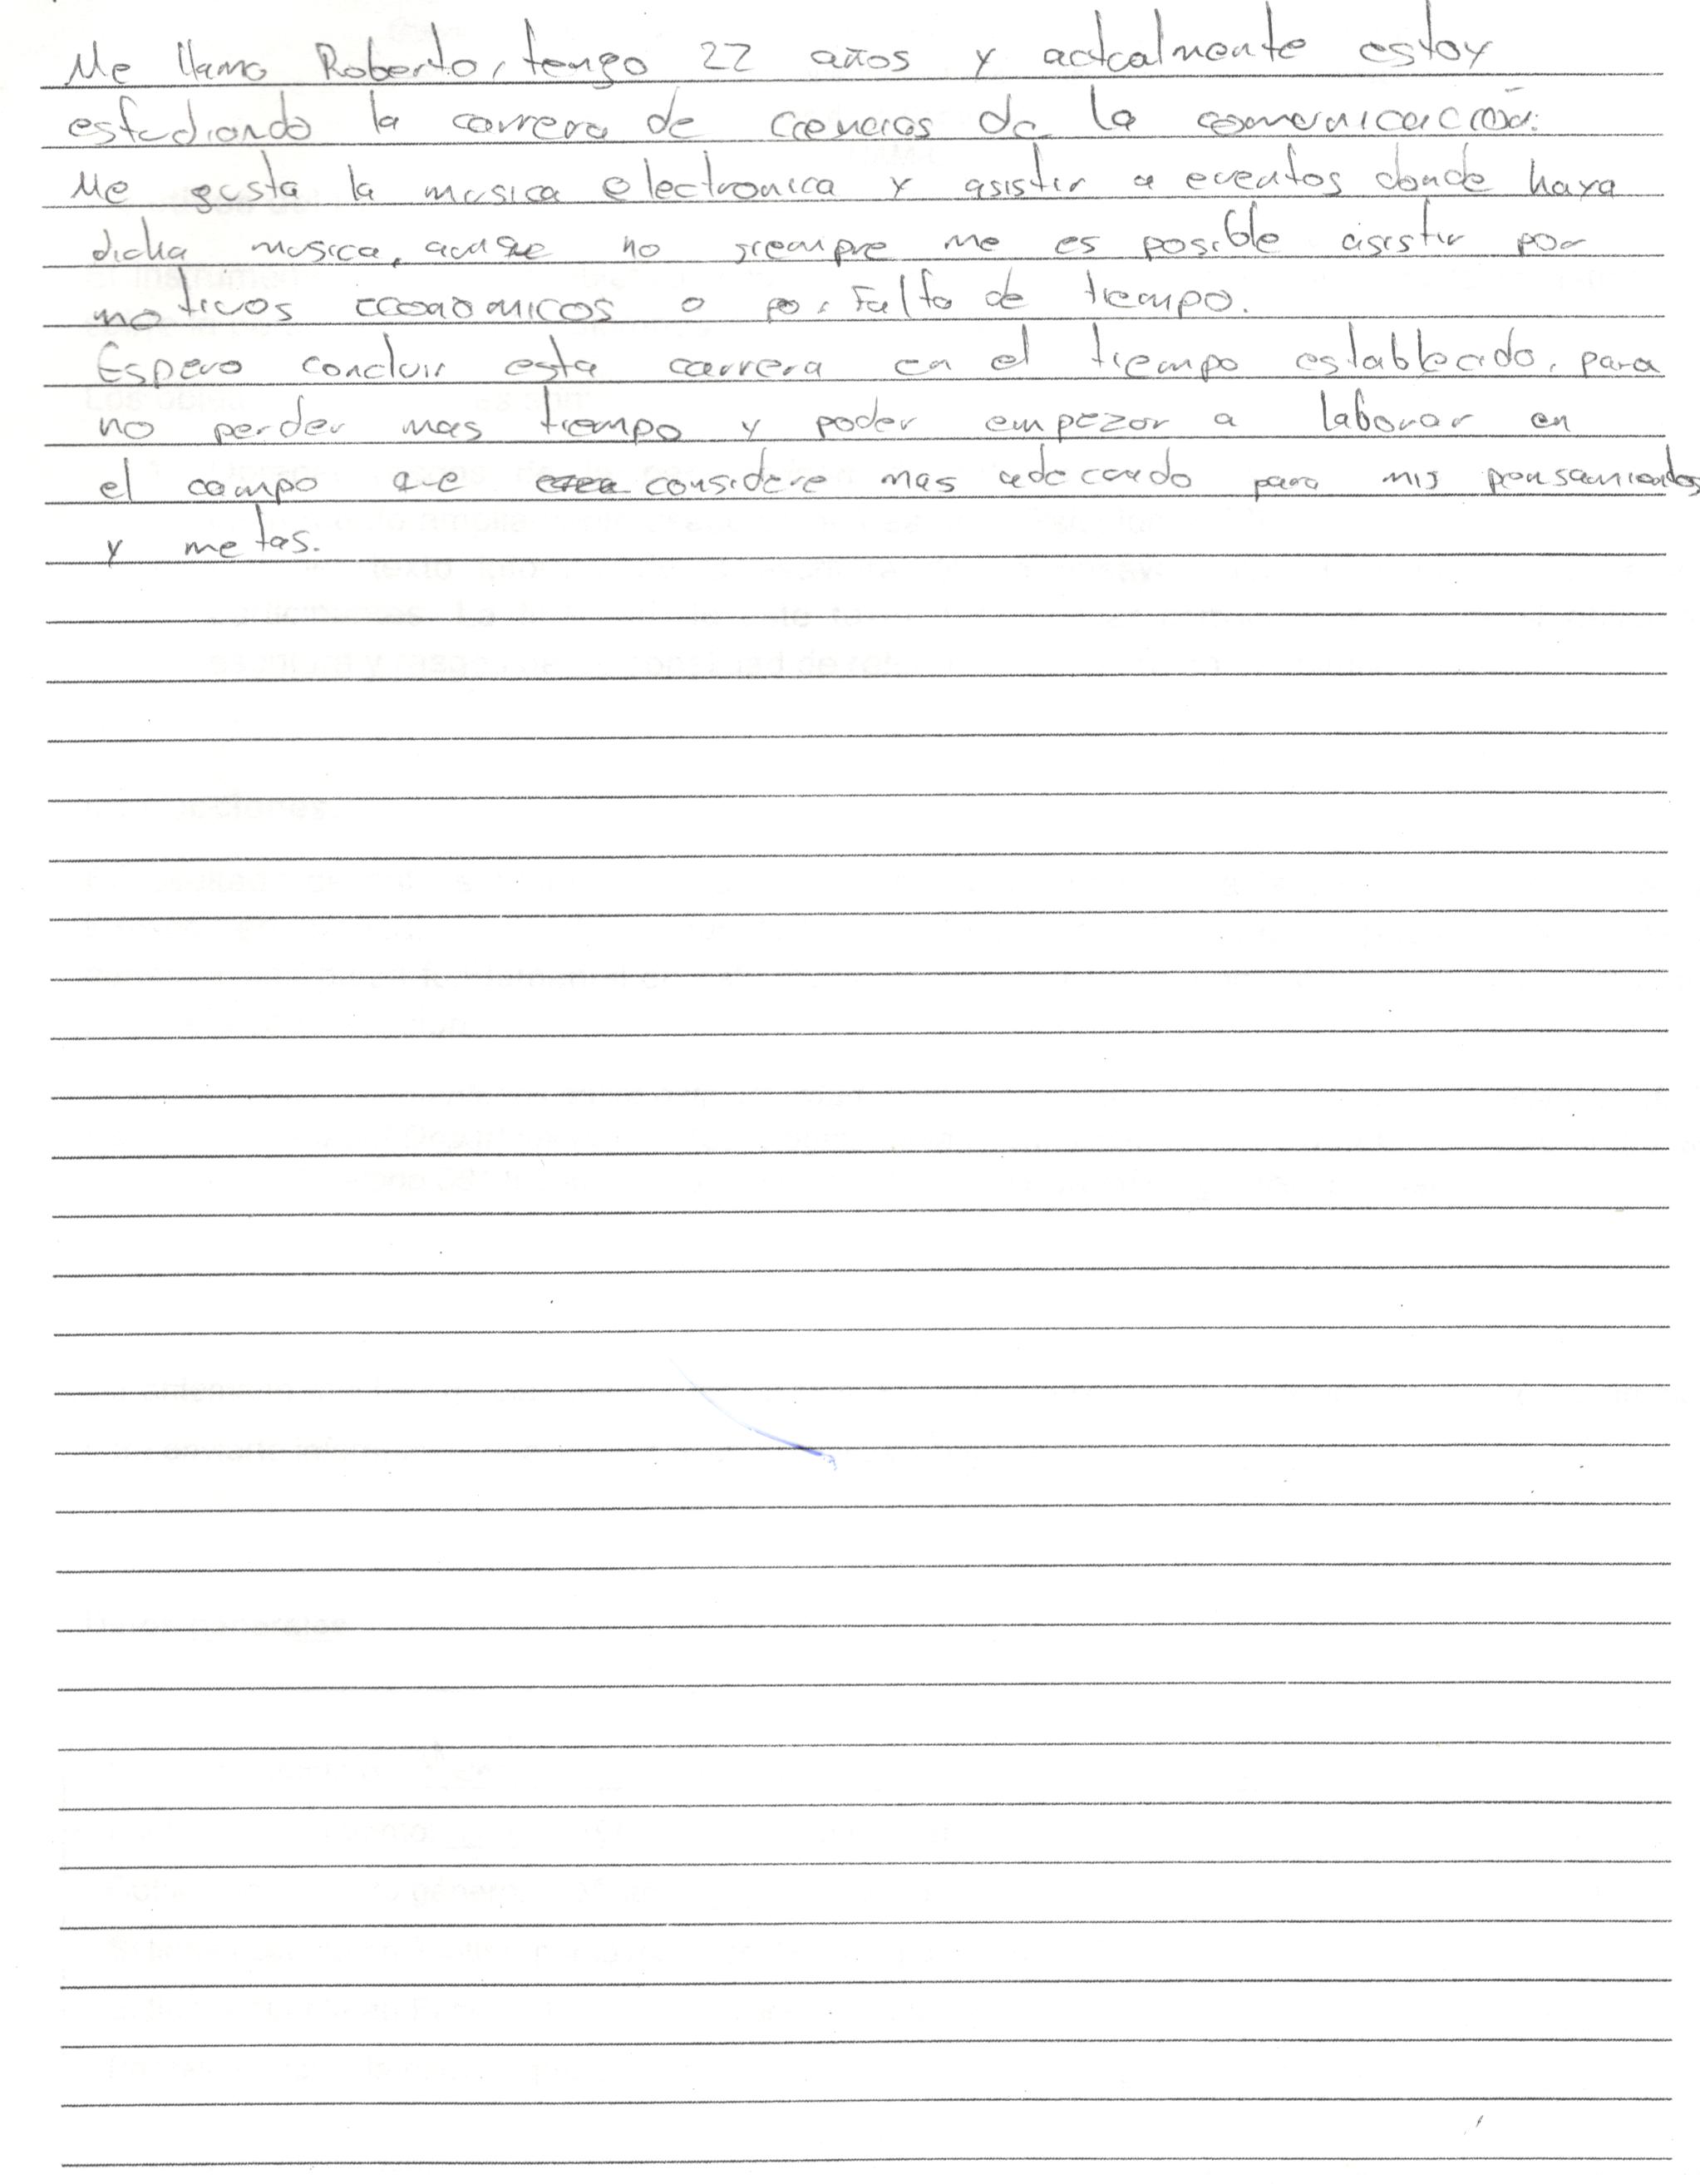 Me llamo Roberto, tengo 22 años y actualmente estoy
estudiando la carrera de ciencias de la comunicación.
Me gusta la musica electronica y asistir a eventos donde haya
dicha musica, aunque no siempre me es posible asistir por
motivos economicos o por falta de tiempo.
Espero concluir esta carrera en el tiempo establecido, para
no perder mas tiempo y poder empezar a laborar en
el campo que considere mas adecuado para mis pensamientos
y metas.